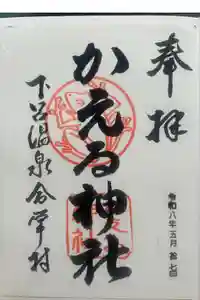 奉拝
令和八年五月拾七日
かえる神社
下呂温泉合掌村